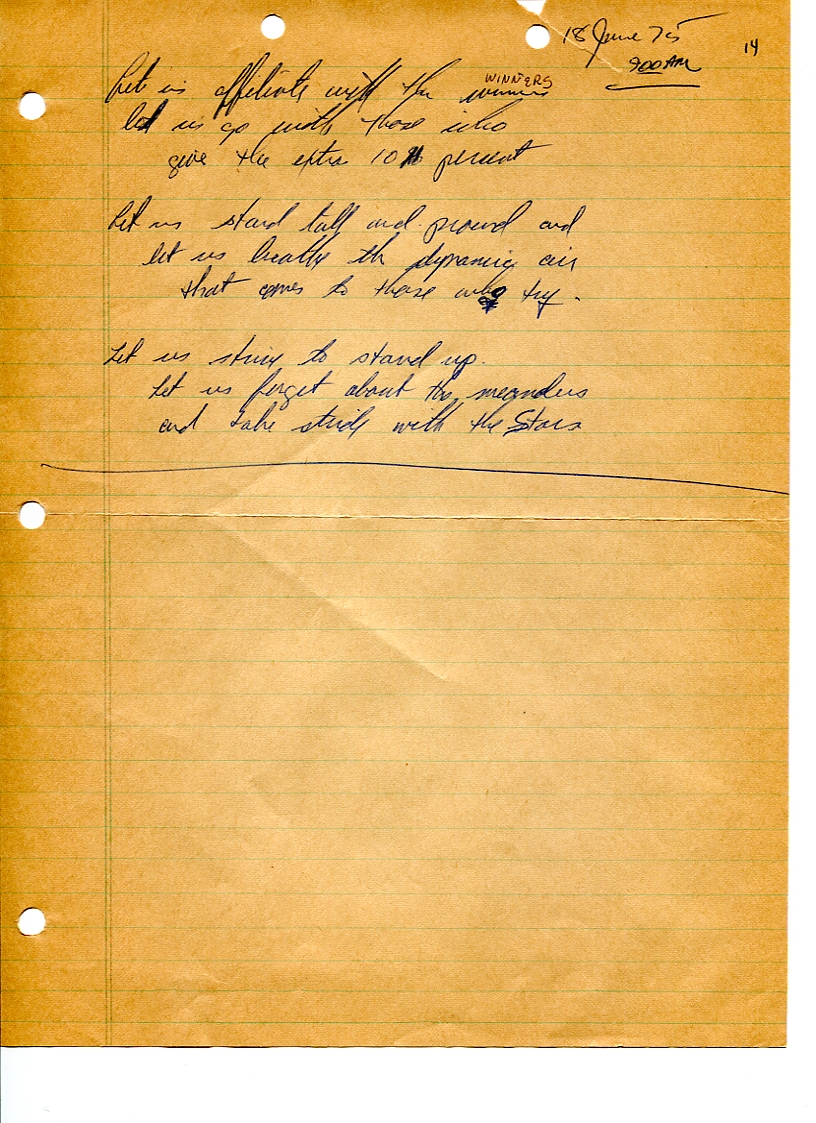 18 June 75
14
900 AM
WINNERS
Let us affiliate with the winners
let us go with those who
give the extra 10 percent
Let us stand tall and proud and
let us breathe the dynamic air
that comes to those who try.
Let us strive to stand up.
Let us forget about the meanders
and take stride with the Stars